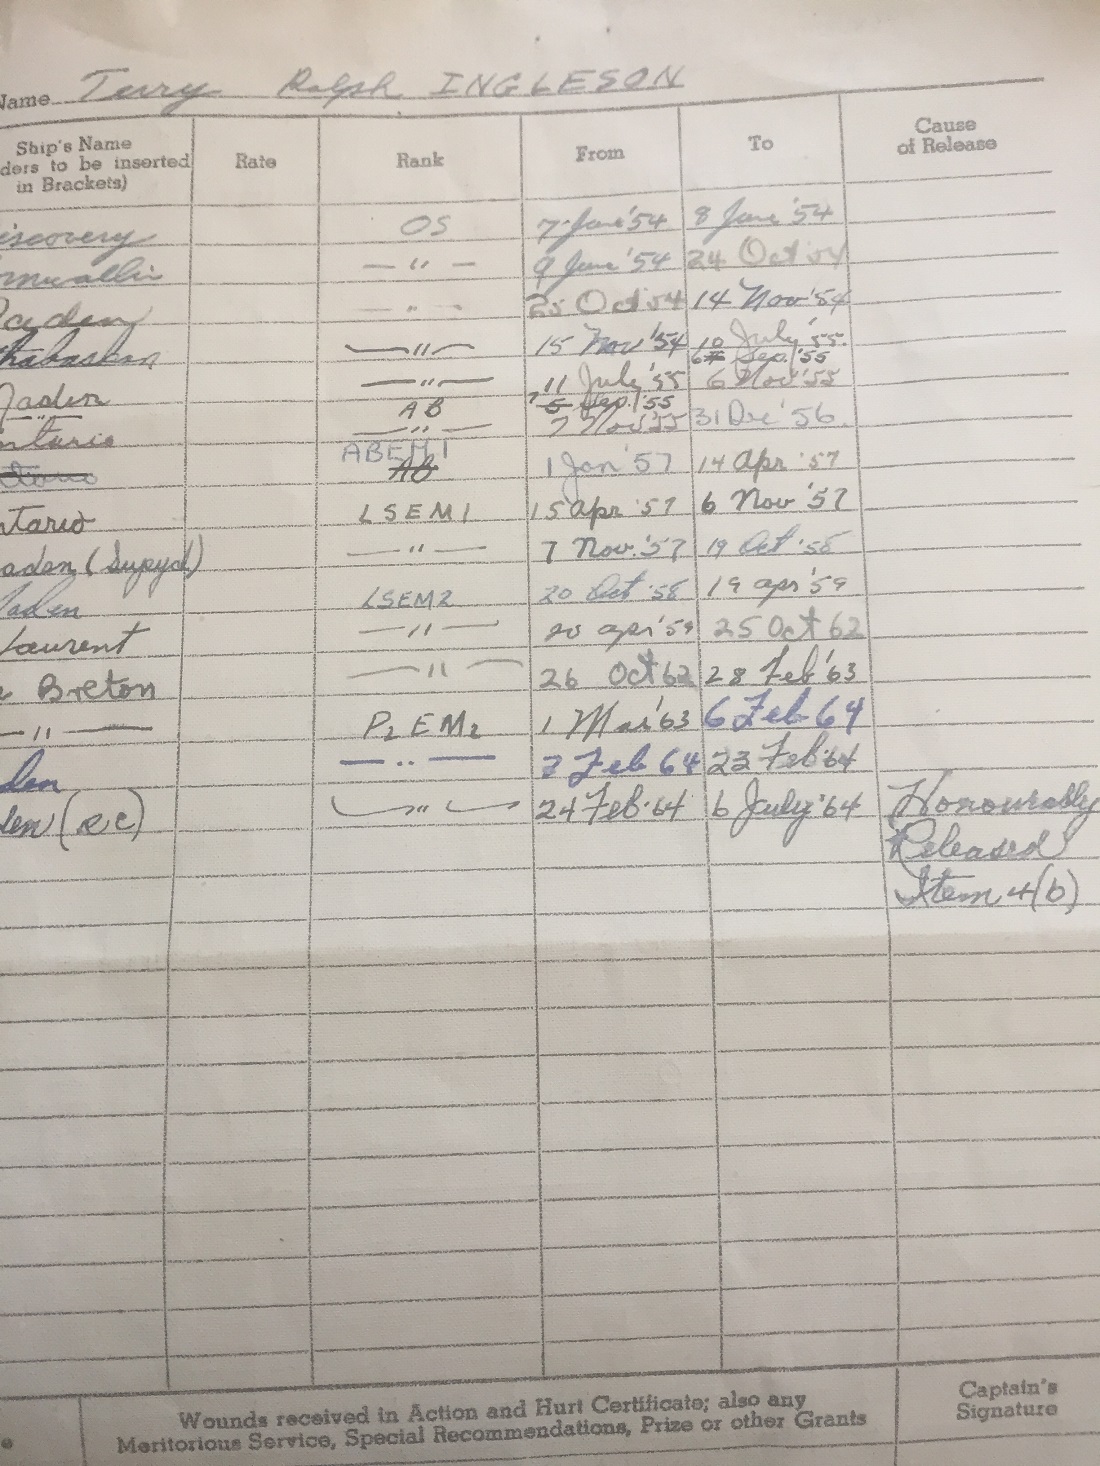 Name Terry Ralph INGLESON
Ship's Name Rate Rank From To Cause
ders to be inserted of Release
in Brackets)
iscovery OS 7 June '54 8 June '54
ornwallis — " — 9 June '54 24 Oct 54
aden " 25 Oct 54 14 Nov '54
thabaskan — " — 15 Nov '54 10 July '55.
6 Sep./'55
Naden — " — 11 July '55 6 Nov '55
" AB 5 Sep./'55
ntario — " — 7 Nov '55 31 Dec '56.
ABEM1
AB 1 Jan '57 14 Apr '57
ntario LSEM1 15 Apr '57 6 Nov '57
aden (Supyd) — " — 7 Nov. '57 19 Oct '58
Naden LSEM2 20 Oct '58 19 Apr '59
Laurent — " — 20 Apr '59 25 Oct 62
e Breton — " — 26 Oct 62 28 Feb '63
— " — P2 EM2 1 Mar '63 6 Feb 64
den — " — 7 Feb 64 23 Feb '64
den (RC) — " — 24 Feb. 64 6 July '64 Honourably
Released
Item 4(b)
Wounds received in Action and Hurt Certificate; also any Captain's
Meritorious Service, Special Recommendations, Prize or other Grants Signature
e